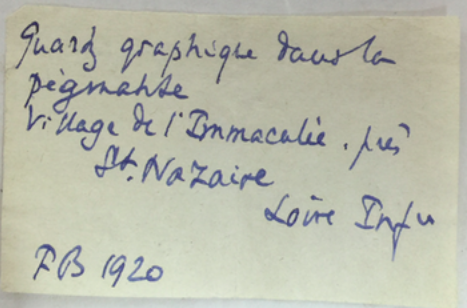 Quartz graphique dans la
pegmatite
Village de l'Immaculée. près
St. Nazaire
Loire Infre
FB 1920